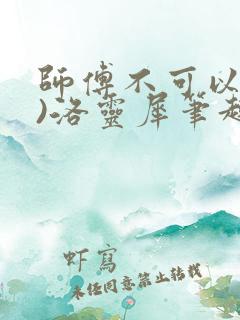 師傅不可以
)洛靈犀筆趣
虾寫
未经同意禁止转载